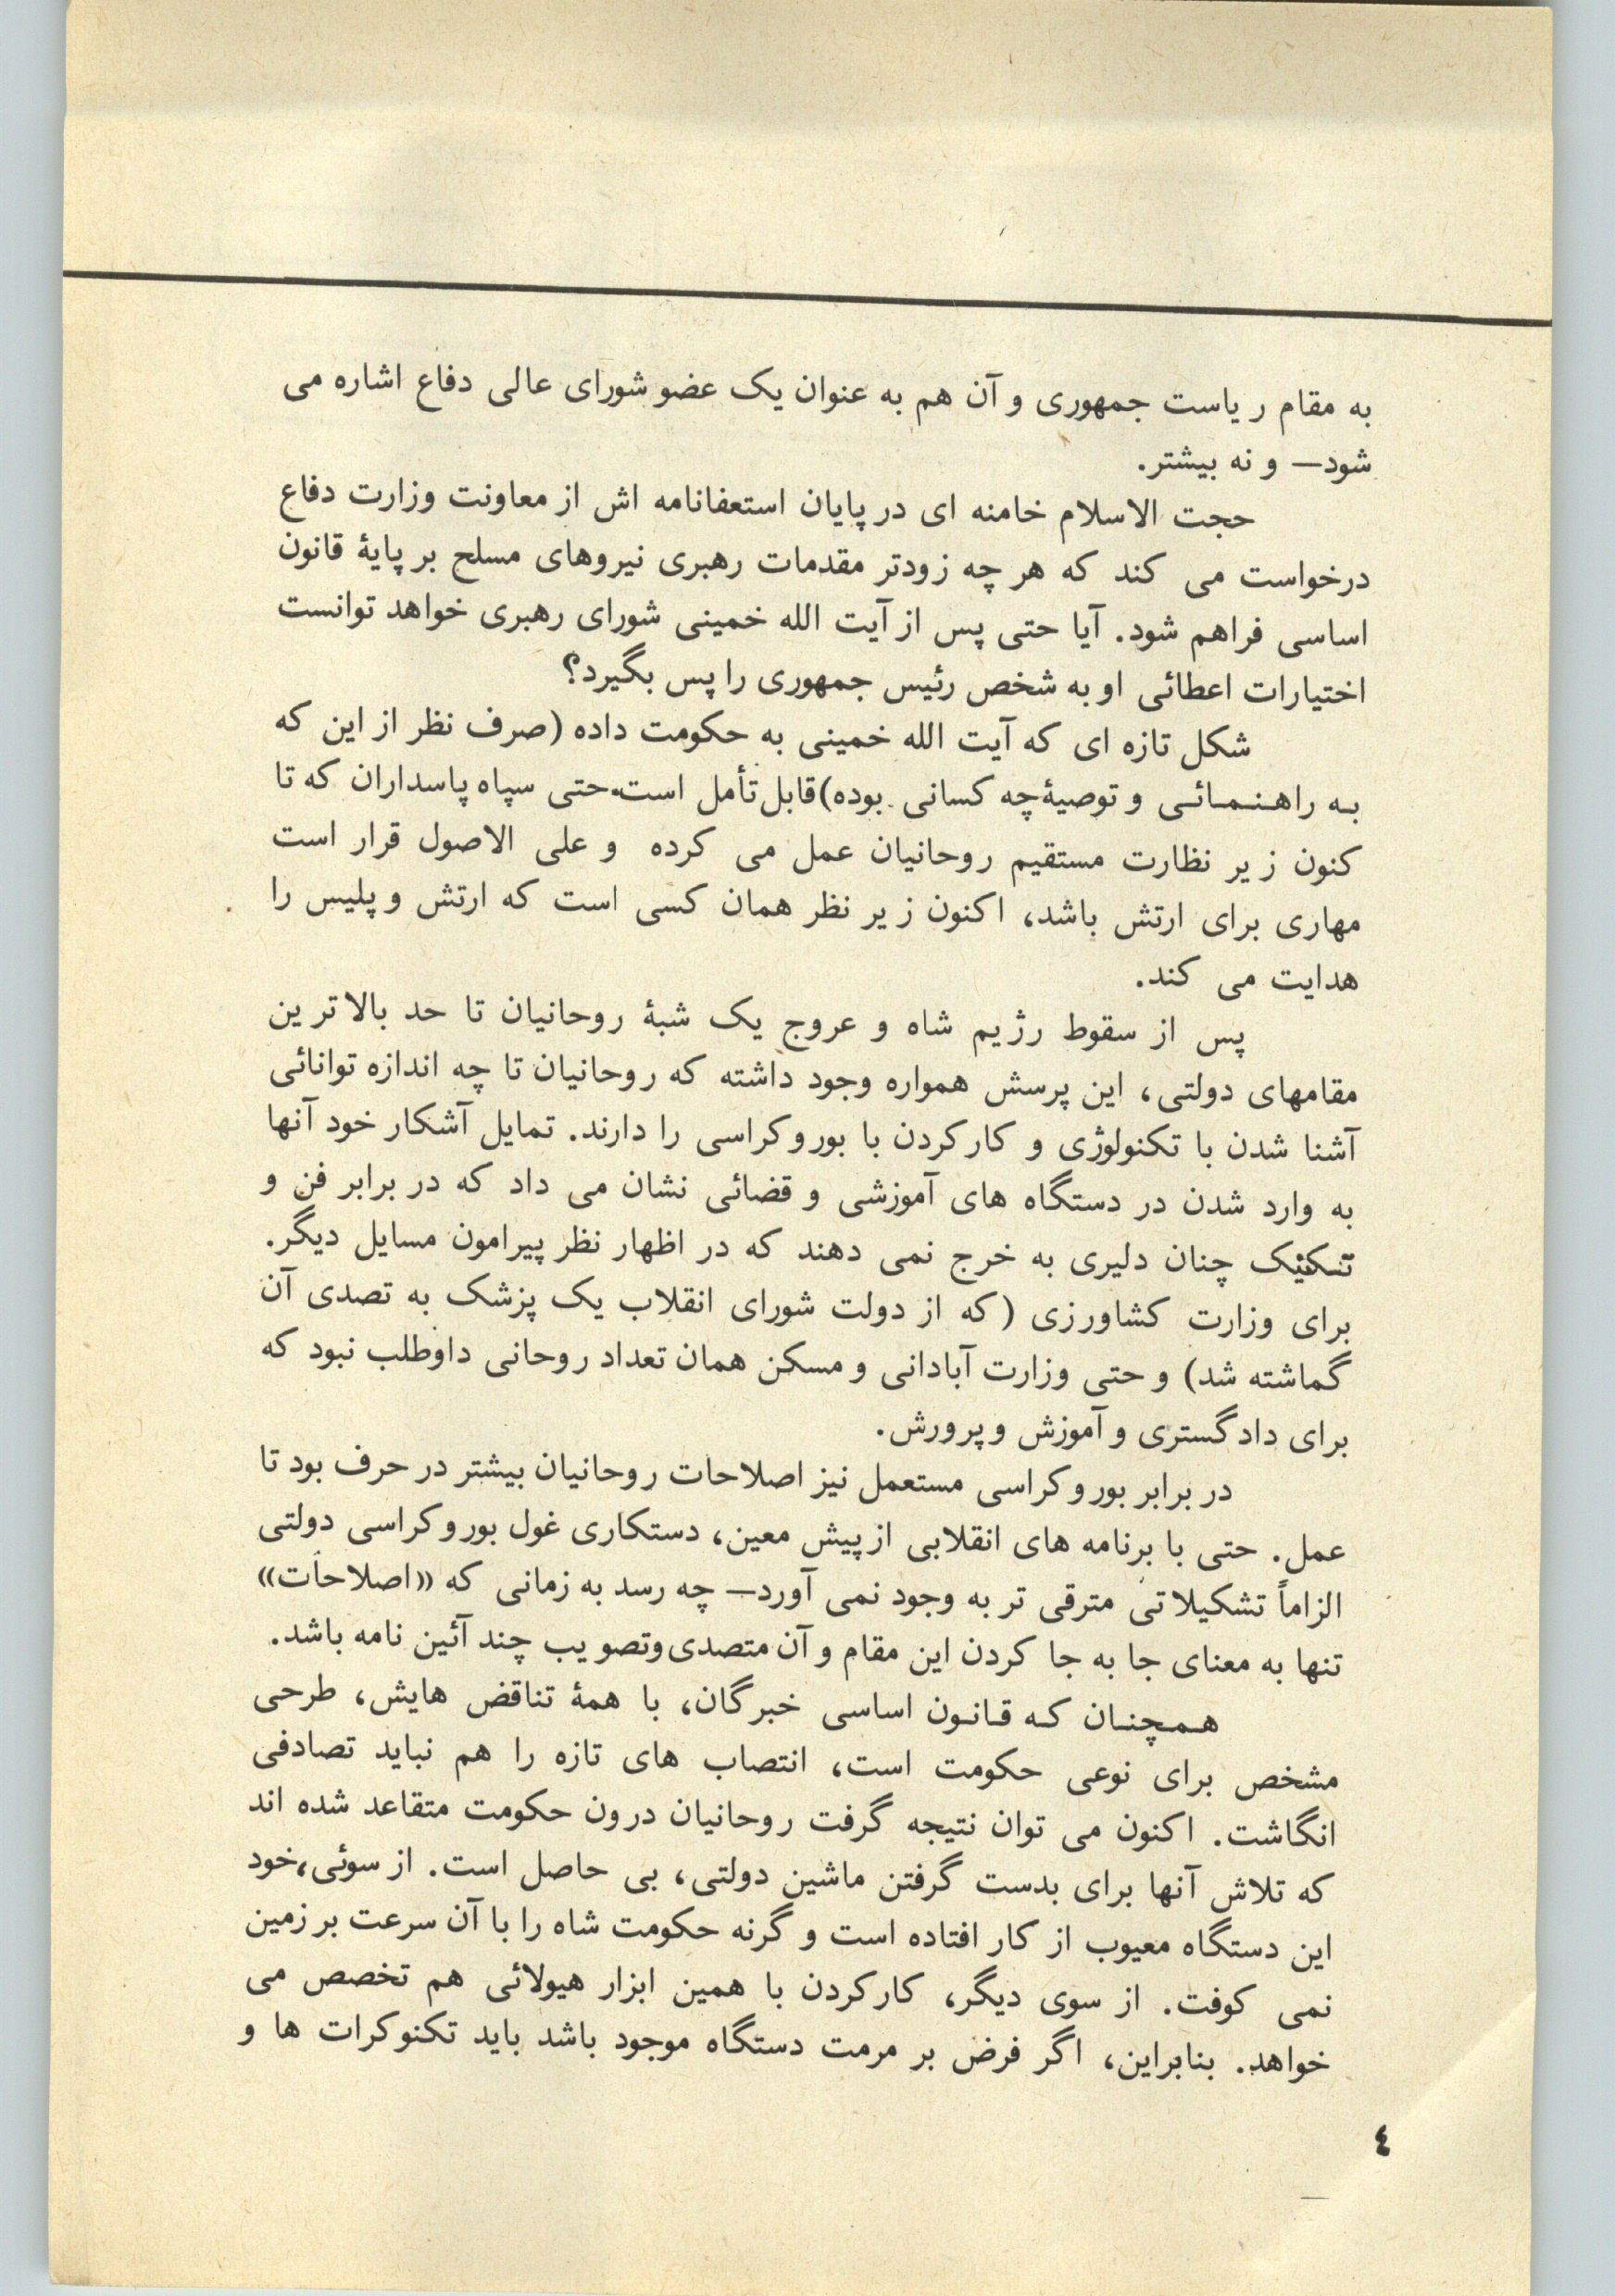 به مقام ریاست جمهوری و آن هم به عنوان یک عضو شورای عالی دفاع اشاره می
شود— و نه بیشتر.
حجت الاسلام خامنه ای در پایان استعفانامه اش از معاونت وزارت دفاع
درخواست می کند که هر چه زودتر مقدمات رهبری نیروهای مسلح بر پایۀ قانون
اساسی فراهم شود. آیا حتی پس از آیت الله خمینی شورای رهبری خواهد توانست
اختیارات اعطائی او به شخص رئیس جمهوری را پس بگیرد؟
شکل تازه ای که آیت الله خمینی به حکومت داده (صرف نظر از این که
به راهنمائی و توصیۀ چه کسانی بوده) قابل تأمل است. حتی سپاه پاسداران که تا
کنون زیر نظارت مستقیم روحانیان عمل می کرده و علی الاصول قرار است
مهاری برای ارتش باشد، اکنون زیر نظر همان کسی است که ارتش و پلیس را
هدایت می کند.
پس از سقوط رژیم شاه و عروج یک شبۀ روحانیان تا حد بالاترین
مقامهای دولتی، این پرسش همواره وجود داشته که روحانیان تا چه اندازه توانائی
آشنا شدن با تکنولوژی و کارکردن با بوروکراسی را دارند. تمایل آشکار خود آنها
به وارد شدن در دستگاه های آموزشی و قضائی نشان می داد که در برابر فن و
تکنیک چنان دلیری به خرج نمی دهند که در اظهار نظر پیرامون مسایل دیگر.
برای وزارت کشاورزی (که از دولت شورای انقلاب یک پزشک به تصدی آن
گماشته شد) و حتی وزارت آبادانی و مسکن همان تعداد روحانی داوطلب نبود که
برای دادگستری و آموزش و پرورش.
در برابر بوروکراسی مستعمل نیز اصلاحات روحانیان بیشتر در حرف بود تا
عمل. حتی با برنامه های انقلابی از پیش معین، دستکاری غول بوروکراسی دولتی
الزاماً تشکیلاتی مترقی تر به وجود نمی آورد— چه رسد به زمانی که «اصلاحات»
تنها به معنای جا به جا کردن این مقام و آن متصدی و تصویب چند آئین نامه باشد.
همچنان که قانون اساسی خبرگان، با همۀ تناقض هایش، طرحی
مشخص برای نوعی حکومت است، انتصاب های تازه را هم نباید تصادفی
انگاشت. اکنون می توان نتیجه گرفت روحانیان درون حکومت متقاعد شده اند
که تلاش آنها برای بدست گرفتن ماشین دولتی، بی حاصل است. از سوئی، خود
این دستگاه معیوب از کار افتاده است و گرنه حکومت شاه را با آن سرعت بر زمین
نمی کوفت. از سوی دیگر، کارکردن با همین ابزار هیولائی هم تخصص می
خواهد. بنابراین، اگر فرض بر مرمت دستگاه موجود باشد باید تکنوکرات ها و
٤